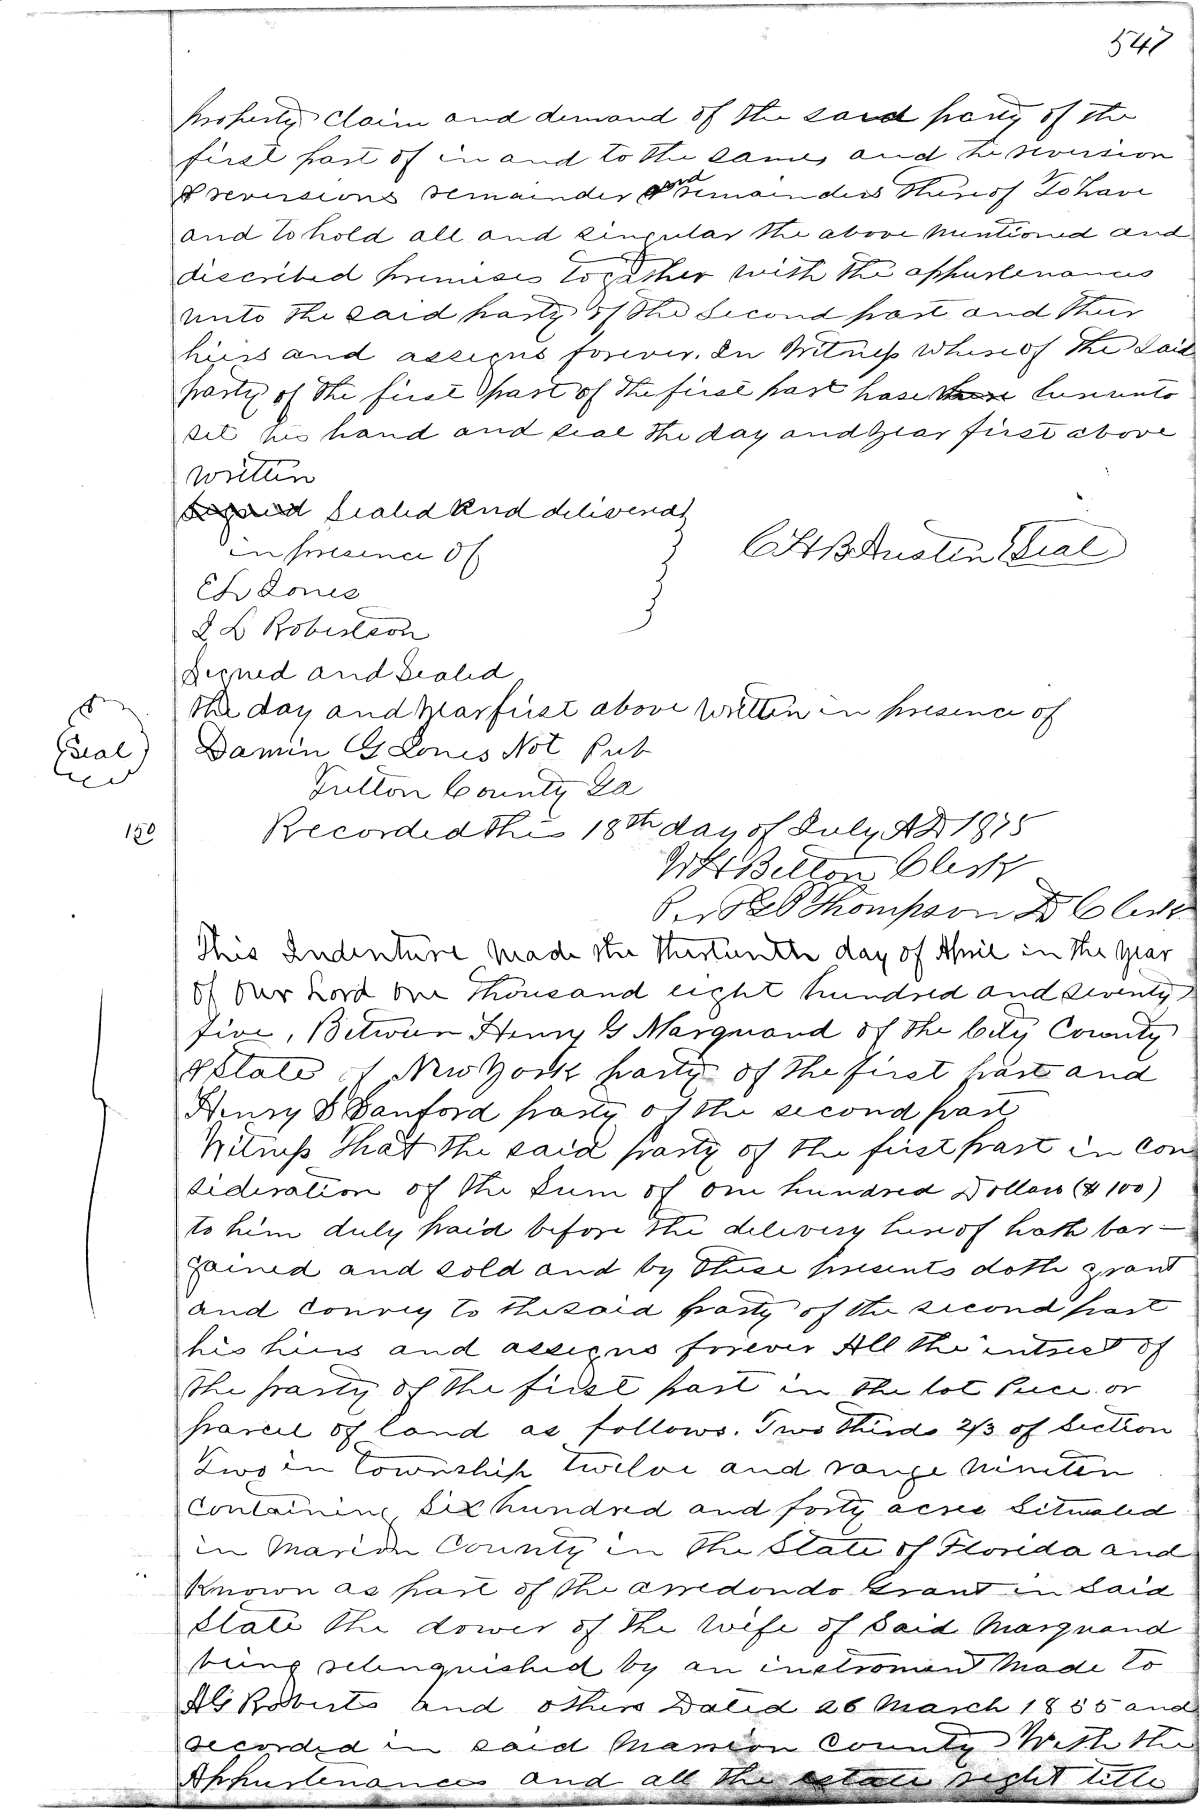 547
property claim and demand of the said party of the
first part of in and to the same, and the reversion
& reversions remainder and remainders thereof To have
and to hold all and singular the above mentioned and
discribed premises together with the appurtenances
unto the said party of the Second part and their
heirs and assigns forever. In Witness Whereof the Said
party of the first part of the first part hase hereunto
set his hand and seal the day and year first above
written
Signed Sealed And delivered
in presence of
C H B Austin Seal
E L Jones
J L Robertson
Signed and Sealed
the day and year first above written in presence of
Seal
Damin G Jones Not Pub
Fulton County Ga
150
Recorded this 18th day of July AD 1875
W H Belton Clerk
Per Thompson D Clerk
This Indenture Made the thirteenth day of April in the year
of our Lord one thousand eight hundred and seventy
five, Between Henry G Marquand of the City County
& State of New York party of the first part and
Henry S Sanford party of the second part
Witness That the said party of the first part in con
sideration of the Sum of one hundred Dollars ($100)
to him duly paid before the delivery hereof hath bar-
gained and sold and by these presents doth grant
and convey to the said party of the second part
his heirs and assigns forever All the intrest of
the party of the first part in the lot Piece or
parcel of land as follows. Two thirds 2/3 of Section
Two in Township twelve and range nineteen
containing Six hundred and forty acres Situated
in Marion County in the State of Florida and
Known as part of the arredondo Grant in Said
State the dower of the Wife of Said Marquand
being relenquished by an instroment Made to
A G Roberts and others Dated 26 March 1855 and
recorded in said Marrion County With the
Appurtenances and all the estate right title